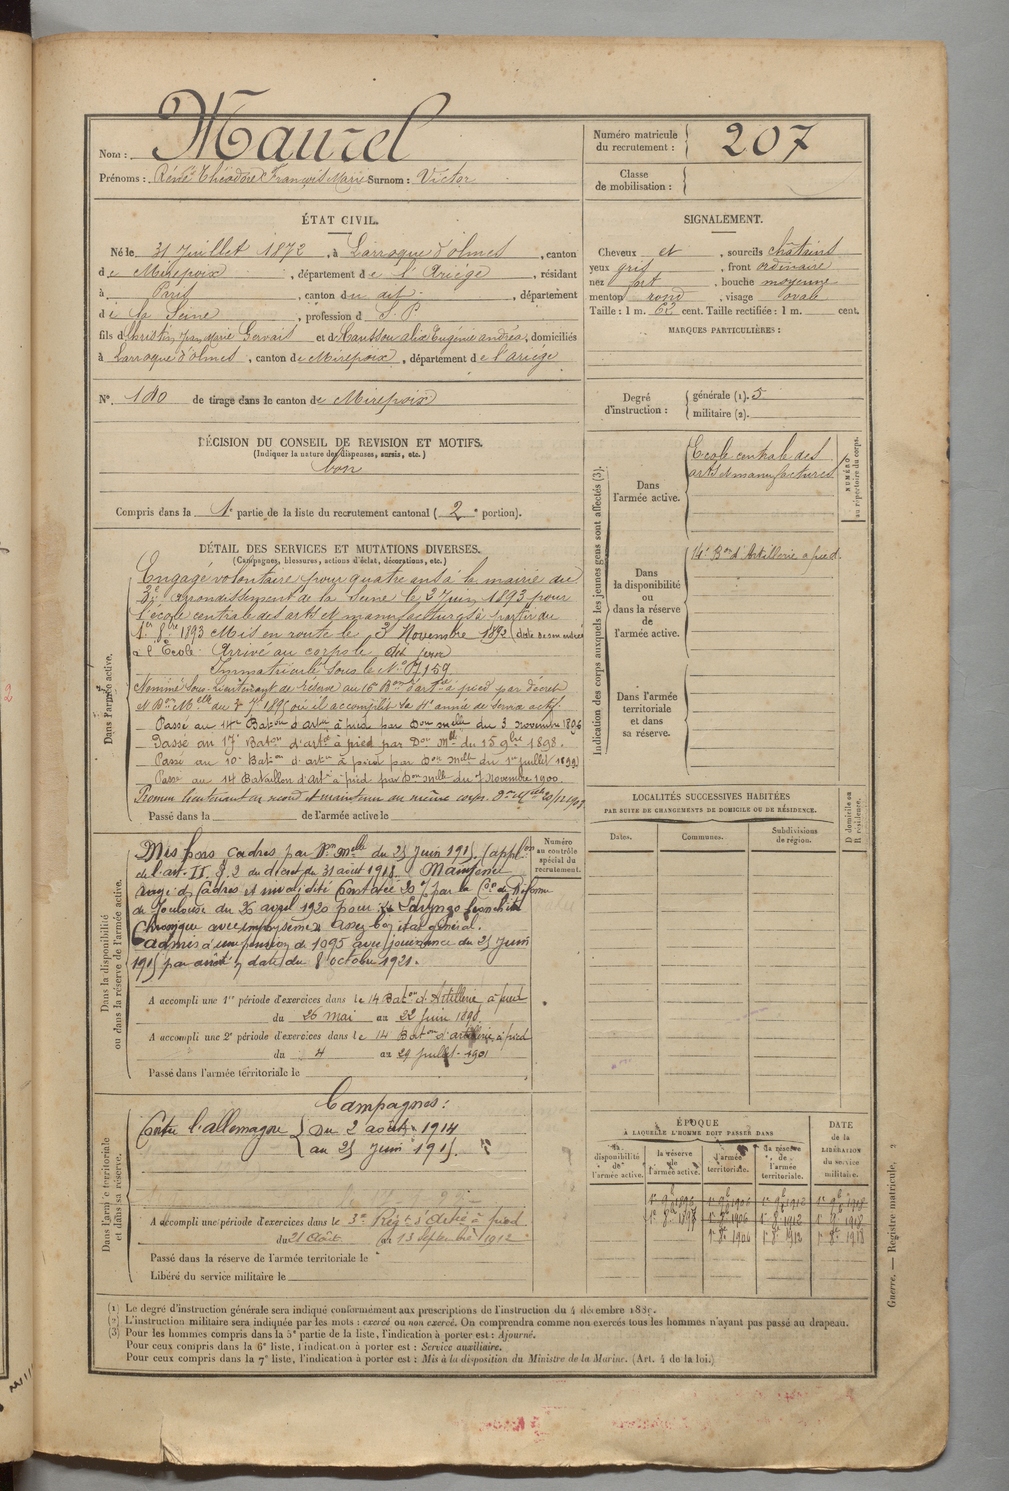 Nom : Maurel
Prénoms : René Théodore François Marie Surnom : Victor
Numéro matricule du recrutement : 207
Classe de mobilisation :
ÉTAT CIVIL.
Né le 31 Juillet 1872, à Larroque d'olmes, canton
de Mirepoix, département de l'Ariége, résidant
à Paris, canton du dit, département
de la Seine, profession d S. P
fils d Christin, Jean Marie Gervais et de Caussou alix Eugénie andréa, domiciliés
à Larroque d'olmes, canton de Mirepoix, département de l'ariége
N° 180 de tirage dans le canton de Mirepoix
SIGNALEMENT.
Cheveux et, sourcils châtains
yeux gris, front ordinaire
nez fort, bouche moyenne
menton rond, visage ovale
Taille : 1 m. 62 cent. Taille rectifiée : 1 m. cent.
MARQUES PARTICULIÈRES :
Degré d'instruction : générale (1). 5
militaire (2).
DÉCISION DU CONSEIL DE REVISION ET MOTIFS.
(Indiquer la nature des dispenses, sursis, etc.)
bon
Compris dans la 1e partie de la liste du recrutement cantonal (2e portion).
DÉTAIL DES SERVICES ET MUTATIONS DIVERSES.
(Campagnes, blessures, actions d'éclat, décorations, etc.)
Dans l'armée active.
Engagé volontaire pour quatre ans à la mairie du
3e arrondissement de la Seine le 3 Juin 1893 pour
l'école centrale des arts et manufactures à partir du
1er 8bre 1893 Mis en route le 3 Novembre 1892 (date de son entrée
à l'École Arrivé au corps le dit jour
Immatriculé sous le N°
Nommé Sous-Lieutenant de réserve au 16e Bon d'artie à pied par décret
où il accomplit la 4e année de service actif.
Passé au 14me Baton d'artie à pied par Don mlle du 3 novembre 1896
Passé au 17e Baton d'artie à pied par Don Mlle du 15 9bre 1898.
Passé au 10e Baton d'artie à pied par Don melle du 1er juillet 1899
Passé au 14 Bataillon d'artie à pied par Don melle du 7 novembre 1900.
Promu lieutenant en second et maintenu au même corps.
Passé dans la de l'armée active le
Indication des corps auxquels les jeunes gens sont affectés (3).
Dans l'armée active.
École centrale des
arts et manufactures
NUMÉRO au répertoire du corps.
Dans la disponibilité ou dans la réserve de l'armée active.
14e Bon d'Artillerie a pied.
Dans l'armée territoriale et dans sa réserve.
LOCALITÉS SUCCESSIVES HABITÉES
PAR SUITE DE CHANGEMENTS DE DOMICILE OU DE RÉSIDENCE.
Dates. Communes. Subdivisions de région.
D domicile ou R résidence.
Dans la disponibilité ou dans la réserve de l'armée active.
Numéro au contrôle spécial du recrutement.
Mis hors cadres par Don melle du 25 juin 1915 (applon
de l'art. II. § 2 du décret du 31 août 1918. Maintenu
rayé des Cadres et invalidité Constatée 20 % par la Con de Réforme
de Toulouse du 26 avril 1920 pour Laryngo bronchite
Chronique avec emphysème assez bon état général.
admis à une pension de 1095 avec jouissance du 25 juin
1915 par arrêté en date du 8 octobre 1921.
A accompli une 1re période d'exercices dans le 14 Baton d'Artillerie à pied
du 26 mai au 22 juin 1898
A accompli une 2e période d'exercices dans le 14 Baton d'artillerie à pied
du 4 au 29 juillet 1901
Passé dans l'armée territoriale le
Dans l'armée territoriale et dans sa réserve.
Campagnes :
Contre l'allemagne { Du 2 août 1914
au 25 juin 1915.
A accompli une période d'exercices dans le 3e Régt d'Artie à pied
du 21 Août au 13 Septembre 1912
Passé dans la réserve de l'armée territoriale le
Libéré du service militaire le
ÉPOQUE
À LAQUELLE L'HOMME DOIT PASSER DANS
la disponibilité de l'armée active. la réserve de l'armée active. l'armée territoriale. la réserve de l'armée territoriale.
DATE de la LIBÉRATION du service militaire.
1er 9b 1896 1er 9b 1906 1er 9b 1912 1er 9b 1918
1er 8b 1897 1er 8b 1906 1er 8b 1912 1er 8b 1918
1er 8b 1906 1er 8b 1912 1er 8b 1918
Guerre. — Registre matricule. 2
(1) Le degré d'instruction générale sera indiqué conformément aux prescriptions de l'instruction du 4 décembre 1889.
(2) L'instruction militaire sera indiquée par les mots : exercé ou non exercé. On comprendra comme non exercés tous les hommes n'ayant pas passé au drapeau.
(3) Pour les hommes compris dans la 5e partie de la liste, l'indication à porter est : Ajourné.
Pour ceux compris dans la 6e liste, l'indication à porter est : Service auxiliaire.
Pour ceux compris dans la 7e liste, l'indication à porter est : Mis à la disposition du Ministre de la Marine. (Art. 4 de la loi.)